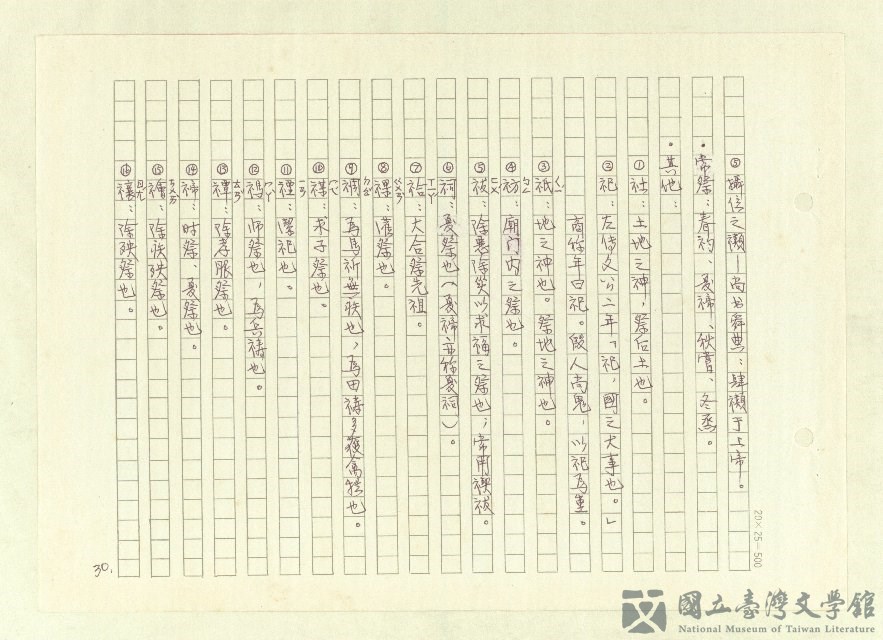 ⑤攝位之禷—尚书舜典：肆禷于上帝。
•常祭：春礿、夏禘、秋嘗、冬烝。
•其他：
①社：土地之神，祭后土也。
②祀：左传文公二年「祀，國之大事也。」
商称年曰祀。殷人尚鬼，以祀為重。
③祇：地之神也。祭地之神也。
④祊：廟门内之祭也。
⑤祓：除惡除災以求福之祭也；常用禊祓。
⑥祠：夏祭也（夏禘亦称夏祠）。
⑦祫：大合祭先祖。
⑧祼：灌祭也。
⑨禂：為馬祈無疾也，為田禱多獲禽牲也。
⑩禖：求子祭也。
⑪禋：潔祀也。
⑫禡：师祭也，為兵禱也。
⑬禫：除孝服祭也。
⑭禘：时祭、夏祭也。
⑮禬：除疾殃祭也。
⑯禳：除殃祭也。
30.
20×25=500
國立臺灣文學館
National Museum of Taiwan Literature